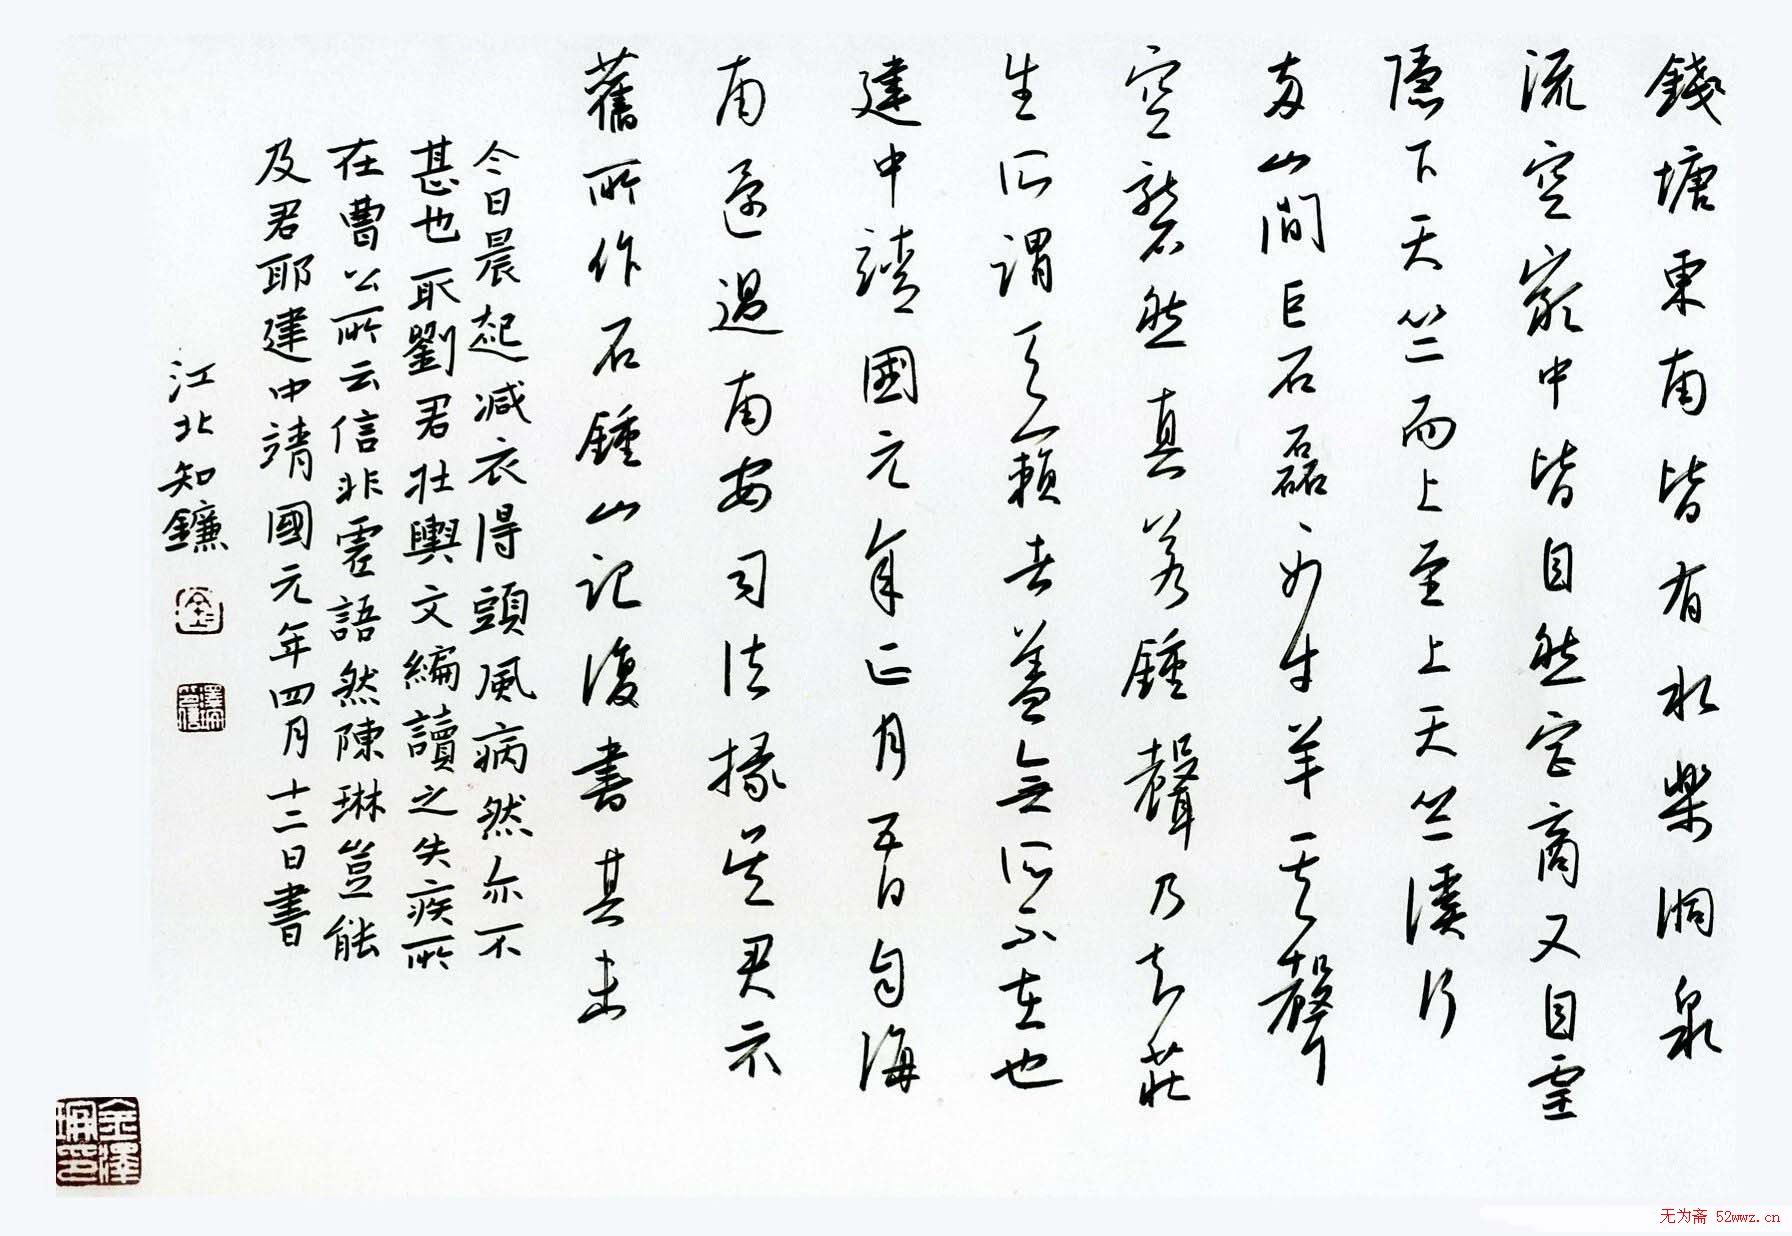 錢塘東南皆有水樂洞泉
流空巖中皆自然宮商又自靈
隱下天竺而上至上天竺溪行
兩山間巨石磊々如牛羊其聲
空礱然真若鍾聲乃知莊
生所謂天籟者蓋無所不在也
建中靖國元年正月五日自海
南還過南安司法掾吳君示
舊所作石鍾山記復書其末
今日晨起減衣得頭風病然亦不
甚也取劉君壯輿文編讀之失疾所
在曹公所云信非虛語然陳琳豈能
及君耶建中靖國元年四月十二日書
江北知鐮
金澤珊印
无为斋 52wwz.cn